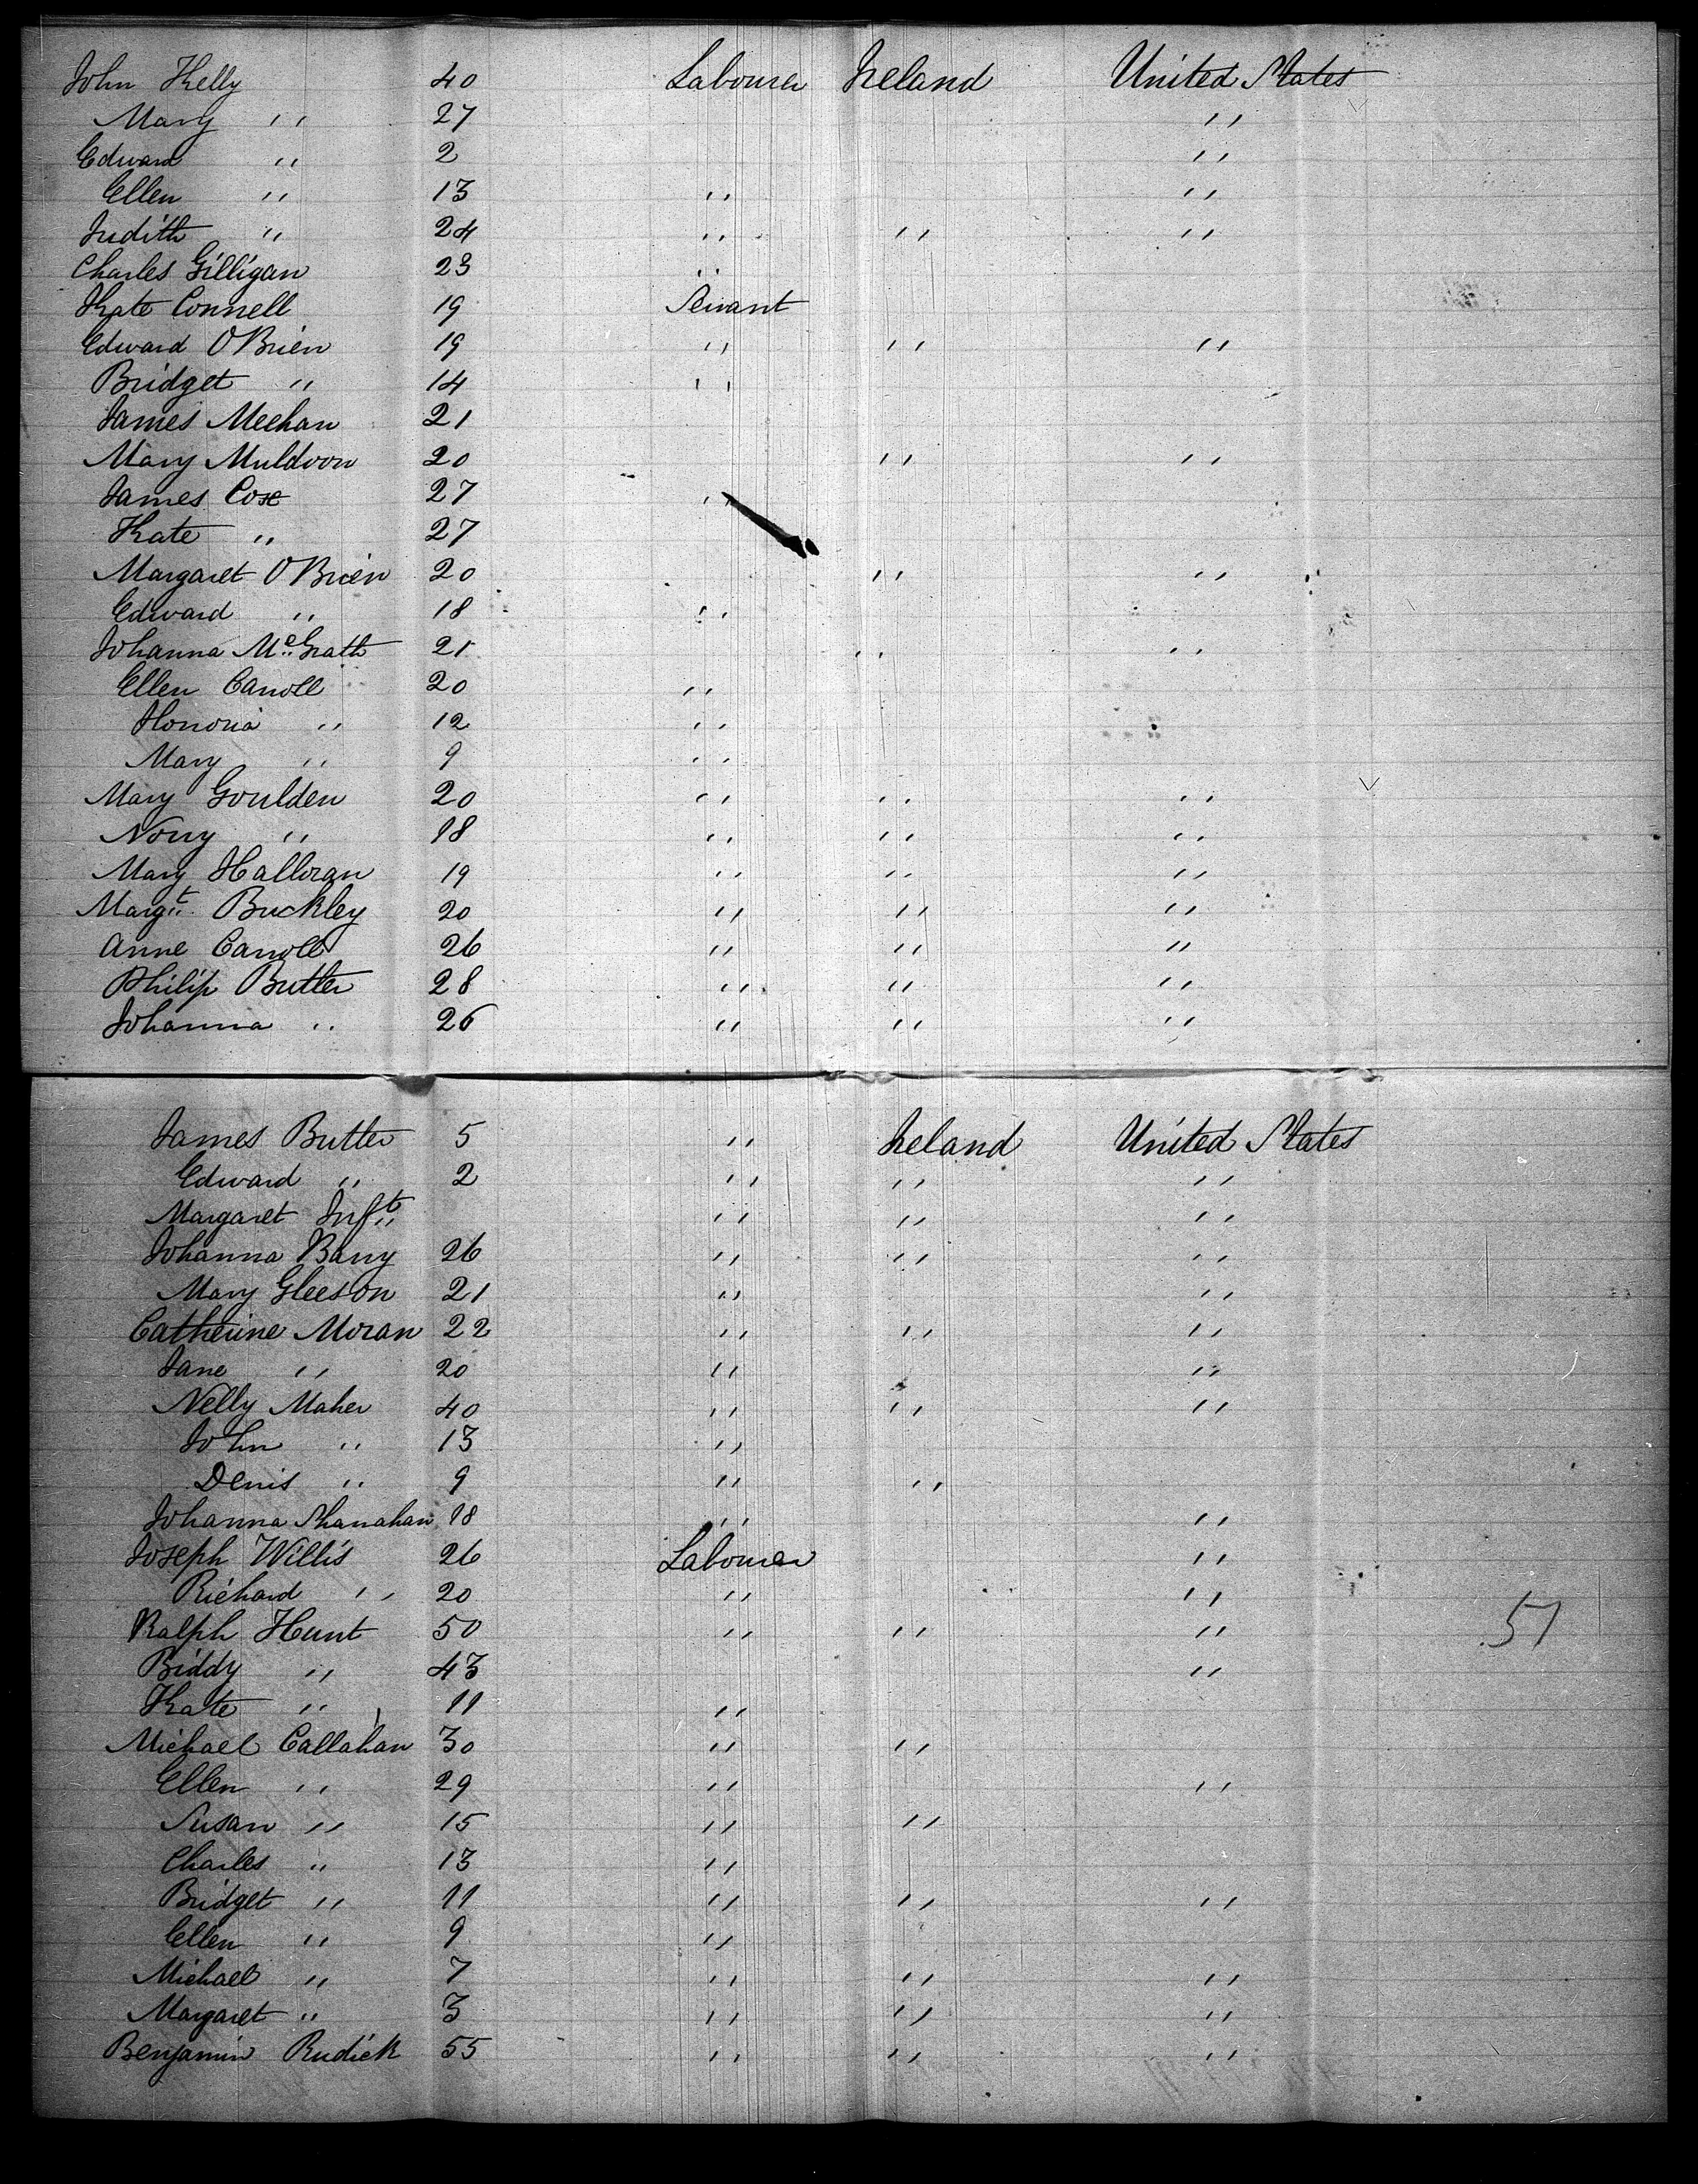 John Kelly 40 Labourer Ireland United States
Mary " 27 "
Edward " 2 "
Ellen " 13 " "
Judith " 24 " " "
Charles Gilligan 23 "
Kate Connell 19 Servant
Edward O'Brien 19 " " "
Bridget " 14 "
James Meehan 21
Mary Muldoon 20 " "
James Cox 27 "
Kate " 27
Margaret O'Brien 20 " "
Edward " 18 "
Johanna McGrath 21 " "
Ellen Carroll 20 "
Honoria " 12 "
Mary " 9 "
Mary Goulden 20 " " "
Nony " 18 " " "
Mary Halloran 19 " " "
Margt. Buckley 20 " " "
Anne Carroll 26 " " "
Philip Butler 28 " " "
Johanna " 26 " " "
James Butler 5 " Ireland United States
Edward " 2 " " "
Margaret Inft " " "
Johanna Barry 26 " " "
Mary Gleeson 21 " "
Catherine Moran 22 " " "
Jane " 20 " "
Nelly Maher 40 " " "
John " 13 "
Denis " 9 " "
Johanna Shanahan 18 " "
Joseph Willis 26 Labourer "
Richard " 20 " "
Ralph Hunt 50 " " " 57
Biddy " 43 "
Kate " 11 "
Michael Callahan 30 " "
Ellen " 29 " "
Susan " 15 " "
Charles " 13 "
Bridget " 11 " " "
Ellen " 9 "
Michael " 7 " " "
Margaret " 3 " " "
Benjamin Rudick 55 " " "